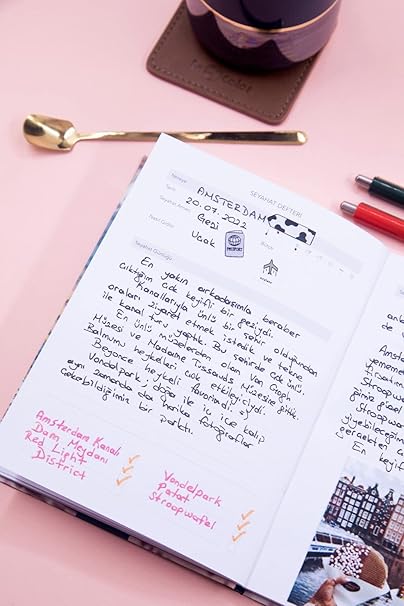 SEYAHAT DEFTERİ
Nereye AMSTERDAM
Tarih 20.07.2022
Seyahat Amacı Gezi
Nasıl Gidilir Uçak
Bütçe
PASSPORT
Seyahat Günlüğü
En yakın arkadaşımla beraber
çıktığım çok keyifli bir geziydi.
Kanallarıyla ünlü bir şehir olduğundan
oraları ziyaret etmek istedik ve tekne
ile kanal turu yaptık. Bu şehirde çok ünlü
En ünlü müzelerden olan Van Gogh
Müzesi ve Madame Tussauds Müzesine gittik.
Balmumu heykelleri çok etkileyiciydi.
Beyonce heykeli favorilerdi.
Vondelpark, doğa ile iç içe kalıp
aynı zamanda da harika fotoğraflar
çekebildiğimiz bir parktı.
Amsterdam Kanalı
Dam Meydanı
Red Light
District
Vondelpark
patat
Stroopwafel